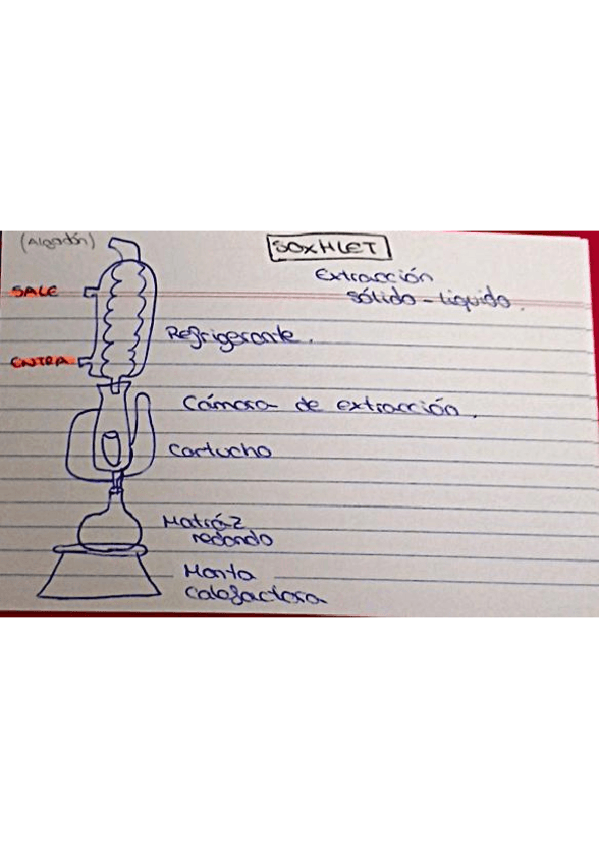 (Algodón)
SOXHLET
Extracción
sólido-liquido.
SALE
Refrigerante.
ENTRA
Cámara de extracción.
Cartucho
Matráz
redondo
Manta
calefactora